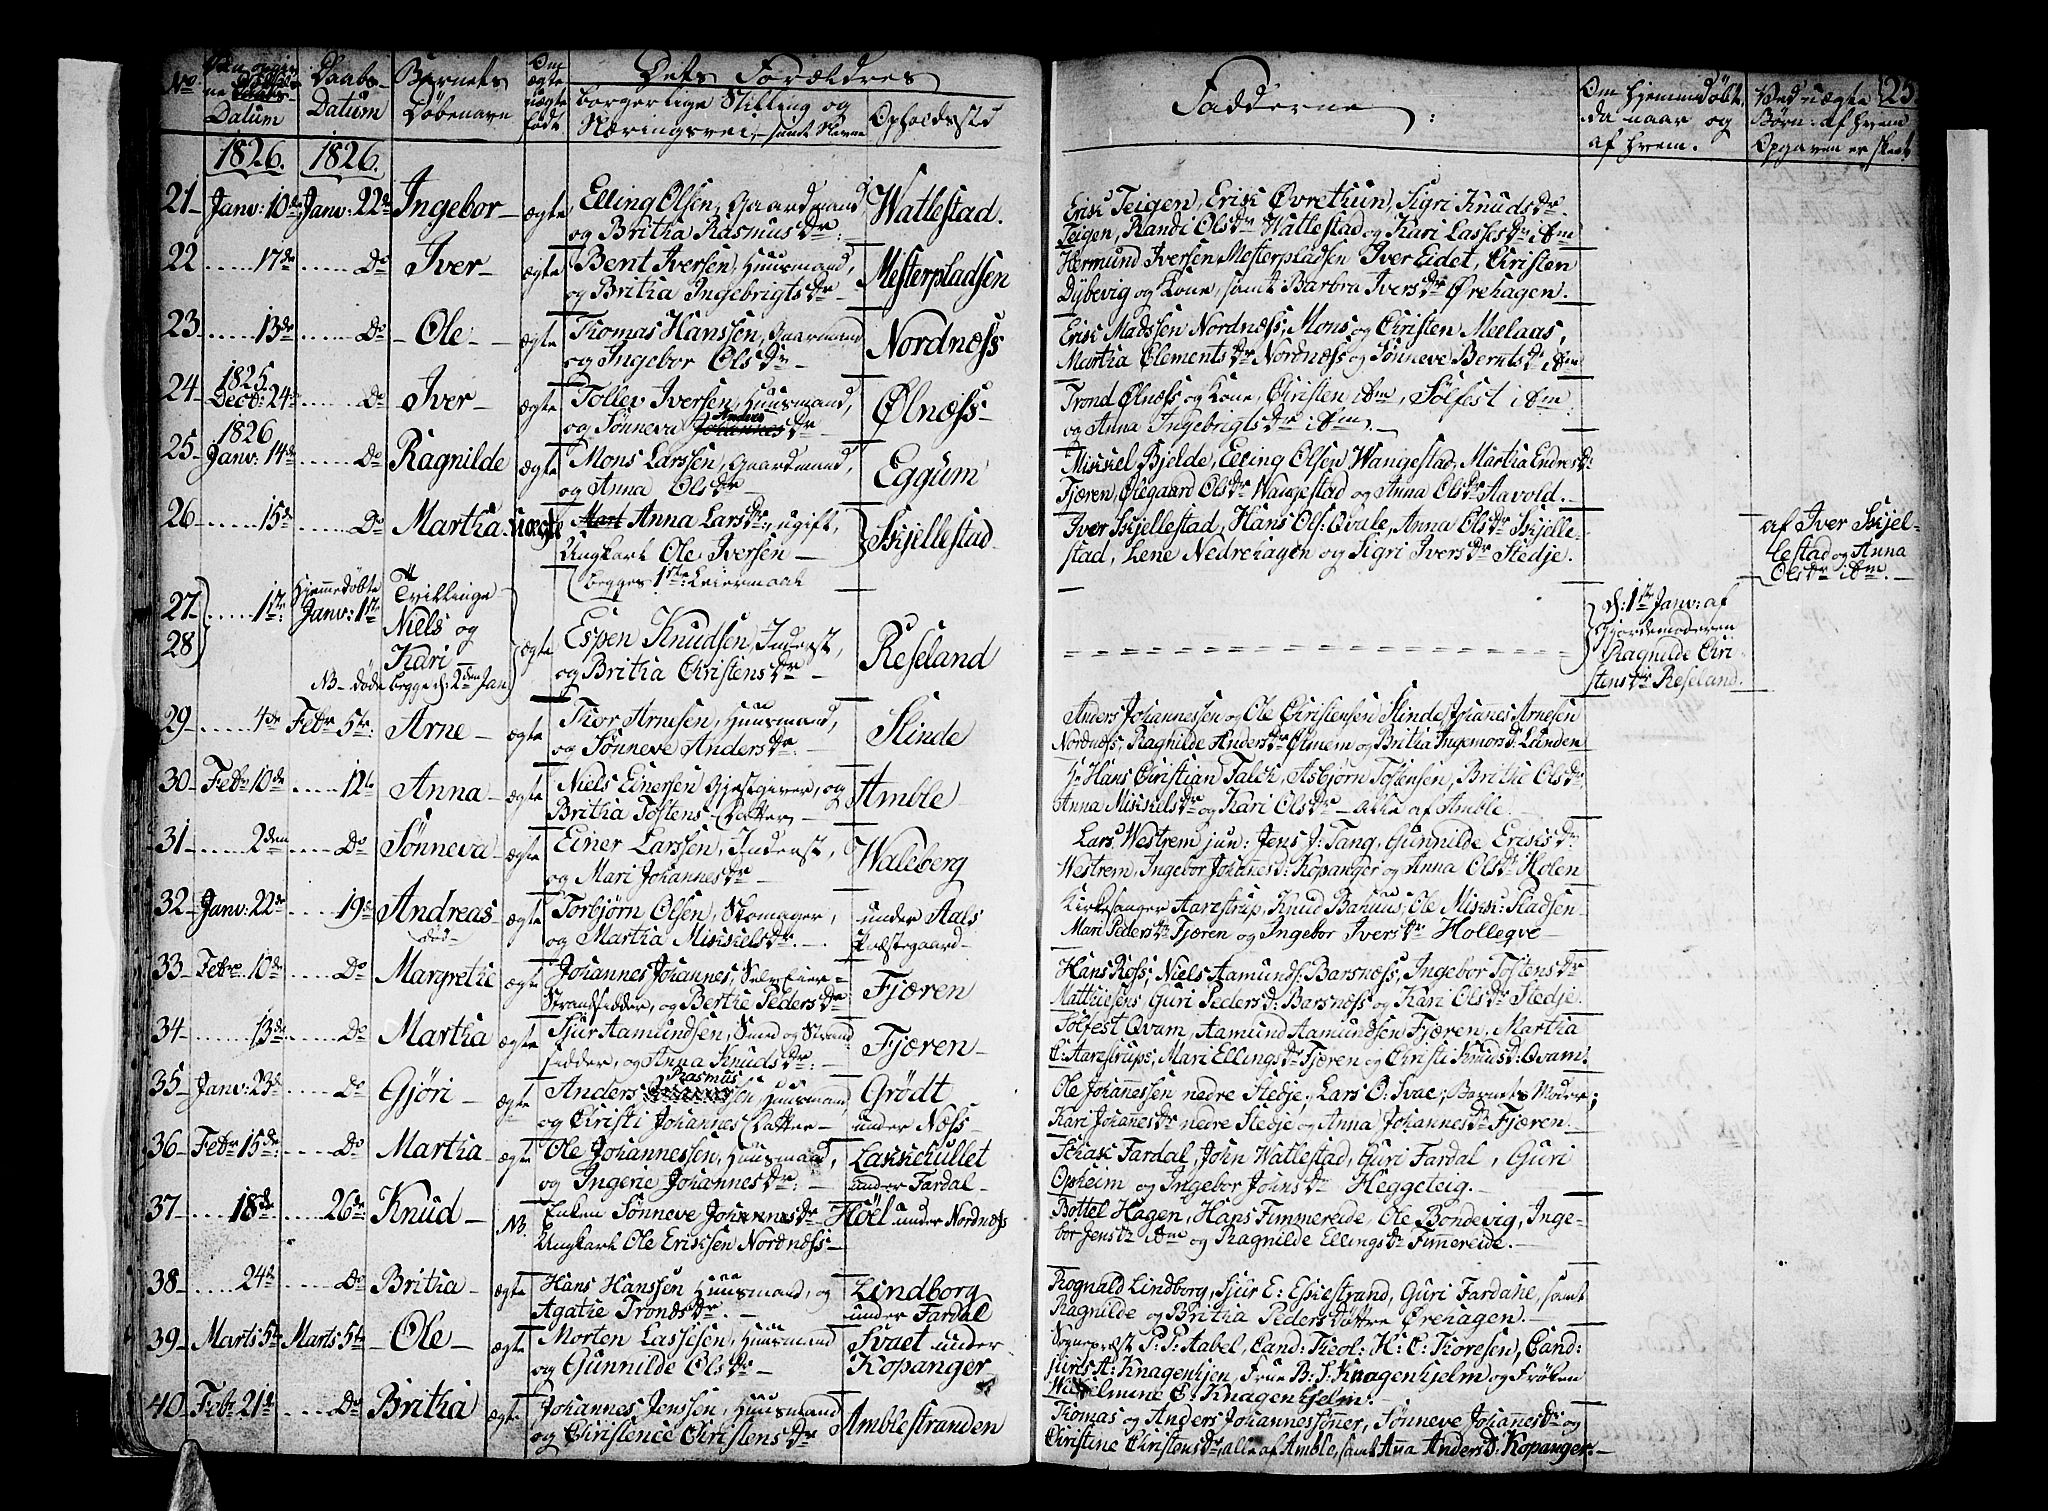 No
Datum
Daabs-
Datum
Barnets
Døbenavn
Om
ægte
uægte
født
Dets Forældres
borgerlige Stilling og
Næringsvei, samt Navne
Opholdssted
Fadderne
Om hjemmedøbt,
da naar og
af hvem.
Ved uægte
Børn: af hvem
Opgaven er skeet
25
1826. 1826.
21 Janv: 10de Janv: 22de Ingebor ægte Elling Olsen, Gaardmand
og Britha Rasmusdr: Watlestad.
Erik Teigen, Erik Øvrethun, Sigri Knudsdr
Teigen, Randi Olsdr Watlestad og Kari Lassesdr ibm
22 17de Do Iver ægte Bent Iversen, Huusmand,
og Britha Ingebrigtsdr Mesterpladsen
Hermund Iversen Mesterpladsen Iver Eidet, Christen
Dybevig og Kone, samt Barbra Iversdr Ørehagen.
23 13de Do Ole ægte Thomas Hanssen, Gaarmand
og Ingebor Olsdr Nordnæss
Erik Madssen Nordnæss, Mons og Christen Meelaas,
Martha Clementsdr Nordnæss og Sønneve Berntsdr ibm
24 1825. Decb: 24de Do Iver ægte Tollev Iversen, Huusmand,
og Sønneva Anders Johannesdr Ølnæss
Trond Ølnæss og Kone, Christen ibm, Sølfest ibm
og Anna Ingebrigtsdr ibm
25 1826 Janv: 14de Do Ragnilde ægte Mons Larssen, Gaardmand,
og Anna Olsdr Eggum
Mikkel Bjelde, Elling Olsen Wangestad, Martha Endresdr
Fjæren, Ølegaard Olsdr Wangestad og Anna Olsdr Aavold.
26 15de Do Martha uægte Mart Anna Larsdr, ugift,
Ungkarl Ole Iversen
begges 1ste Leiermaal Skjellestad
Iver Skjellestad, Hans Ols: Qvale, Anna Olsdr Skjelle-
stad, Lene Nedrehagen og Sigri Iversdr Stedje.
af Iver Skjel-
lestad og Anna
Olsdr ibm.
27 28 1ste Hjemmedøbte Janv: 1ste Tvillinge
Niels og
Kari
NB. døde begge d: 2den Jan
ægte Espen Knudsen, Inderst,
og Britha Christensdr Reseland
d: 1ste Janv: af
Gjordemoderen
Ragnilde Chri
stensdr Reseland.
29 4de Febr 5te Arne ægte Thor Arnesen, Huusmand,
og Sønneve Andersdr Slinde
Anders Johannessen og Ole Christensen Slinde, Johannes Arnesen
Nordnæss, Ragnilde Andersdr Ølmem og Britha Ingemorsd: Lunden
30 Febr 10de 12te Anna ægte Niels Einersen Gjestgiver, og
Britha Tostens Datter Amble
Hr Hans Christian Falck, Asbjørn Tostensen, Brithe Olsdr
Anna Mikkelsdr og Kari Olsdr alle af Amble.
31 2den Do Sønneva ægte Einer Larssen, Inderst,
og Mari Johannesdr Waleberg
Lars Westrem jun: Jens J: Tang, Gunnilde Eriksdr
Westrem, Ingebor Johannesd: Kopanger og Anna Olsdr Holen
32 Janv: 22de 19de Andreas
død
ægte Torbjørn Olsen, Skomager,
og Martha Mikkelsdr. under Aals
Præstegaard
Kirkesanger Aarestrup, Knud Bahuus, Ole Mikk: Pladsen
Mari Pedersdr Fjæren og Ingebor Iversdr Hollegve
33 Febr 10de Do Margrethe ægte Johannes Johannes, SelvEier
Strandsidder, og Berthe Pedersdr Fjæren
Hans Ross, Niels Aamunds: Barsnæss, Ingebor Tostensdr
Matthiesens Guri Pedersd: Barsnæss og Kari Olsdr Stedje.
34 13de Do Martha ægte Sjur Aamundsen, Smed og Strand
sidder, og Anna Knudsdr: Fjæren
Sølfest Qvam, Aamund Aamundsen Fjæren, Martha
C: Aarestrups, Mari Ellingsdr Fjæren og Christi Knudsd: Qvam.
35 Janv: 23de Do Gjøri ægte Anders Rasmussen, Huusmand,
og Christi Johannes Datter Grødt
under Næss
Ole Johannessen nedre Stedje, Lars O: Svae, Barnets Moder;
Kari Johannesdr nedre Stedje og Anna Johannesdr Fjæren.
36 Febr 15de Do Martha ægte Ole Johannessen, Huusmand,
og Ingerie Johannesdr: Lakkehullet
under Fardal
Schak Fardal, John Watlestad, Guri Fardal, Guri
Opheim og Ingebor Johnsdr Heggeteig.
37 18de 26de Knud NB. Enken Sønneve Johannesdr
Ungkarl Ole Eriksen Nordnæss Høel under Nordnæss
Bottel Hagen, Hans Fimmereide, Ole Bondevig, Inge-
bor Jensdr ibm og Ragnilde Ellingsdr Fimmereide.
38 24de Do Britha ægte Hans Hanssen Huusmand, og
Agathe Trondsdr. Lindborg
under Fardal
Rognald Lindborg, Sjur E: Eskestrand, Guri Fardane, samt
Ragnilde og Britha Peders Døttre Ørehagen.
39 Marts: 5te Marts: 5te Ole ægte Morten Lassesen, Huusmand
og Gunnilde Olsdr Svaet under
Kopanger
Sognepræst P: P: Aabel, Cand: Theol: H: C: Thoresen, Cand:
juris A: Knagenhjem, Frue B: S: Knagenhjelm og Frøken
Wilhelmine C: Knagenhjelm.
40 Febr 21de Do Britha ægte Johannes Jenssen, Huusmand
og Christence Christensdr Amblestranden
Thomas og Anders Johannessøner, Sønneve Johannesdr og
Christine Christensdr, alle af Amble, samt Anna Andersd: Kopanger.